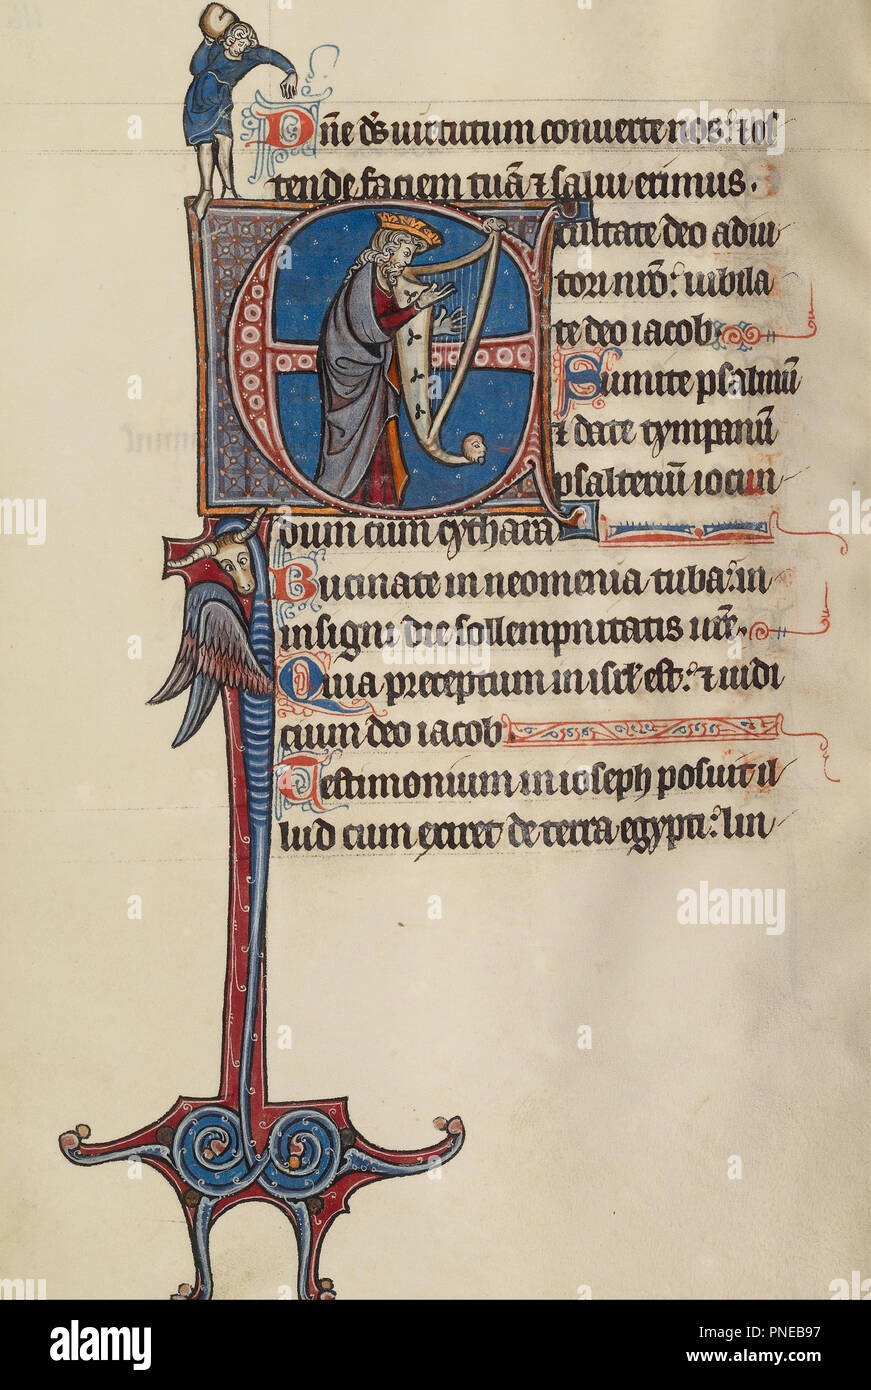 Dñe ds uirtutum conuerte nos: ⁊ os
tende faciem tuã ⁊ salui erimus.
Exultate deo adiu
tori nr̃o: iubila
te deo iacob.
Sumite psalmũ
⁊ date tympanũ
psalteriũ iocun
dum cum cythara
Bucinate in neomenia tuba: in
insigni die sollempnitatis ur̃e.
Quia preceptum in isrl̃ est: ⁊ iudi
cium deo iacob.
Testimonium in ioseph posuit il
lud cum exiret de terra egypti: lin
alamy
alamy
Image ID: PNEB97
www.alamy.com